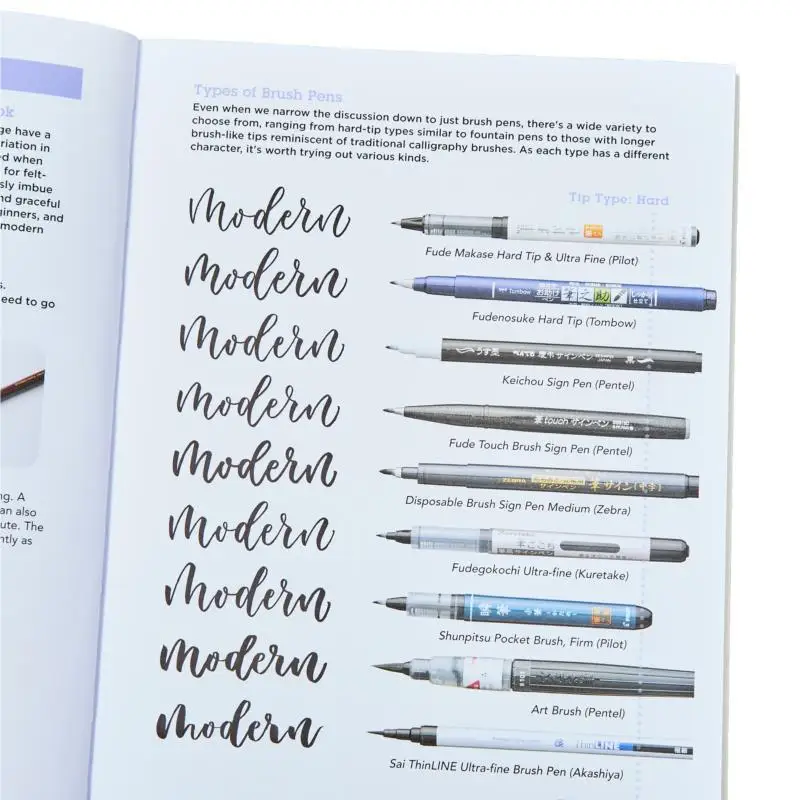 ok
ge have a
riation in
ed when
for felt-
sly imbue
nd graceful
ginners, and
modern
s.
eed to go
ng. A
an also
ute. The
ntly as
Types of Brush Pens
Even when we narrow the discussion down to just brush pens, there's a wide variety to
choose from, ranging from hard-tip types similar to fountain pens to those with longer
brush-like tips reminiscent of traditional calligraphy brushes. As each type has a different
character, it's worth trying out various kinds.
Tip Type: Hard
modern
Fude Makase Hard Tip & Ultra Fine (Pilot)
modern
Tombow 筆之助 しっかり仕立て
Fudenosuke Hard Tip (Tombow)
modern
うす墨 慶弔サインペン 黒
Keichou Sign Pen (Pentel)
modern
筆touchサインペン
Fude Touch Brush Sign Pen (Pentel)
modern
ZEBRA 筆サイン
Disposable Brush Sign Pen Medium (Zebra)
modern
筆ごこち
Fudegokochi Ultra-fine (Kuretake)
modern
瞬筆
Shunpitsu Pocket Brush, Firm (Pilot)
modern
Art Brush (Pentel)
modern
ThinLINE
Sai ThinLINE Ultra-fine Brush Pen (Akashiya)